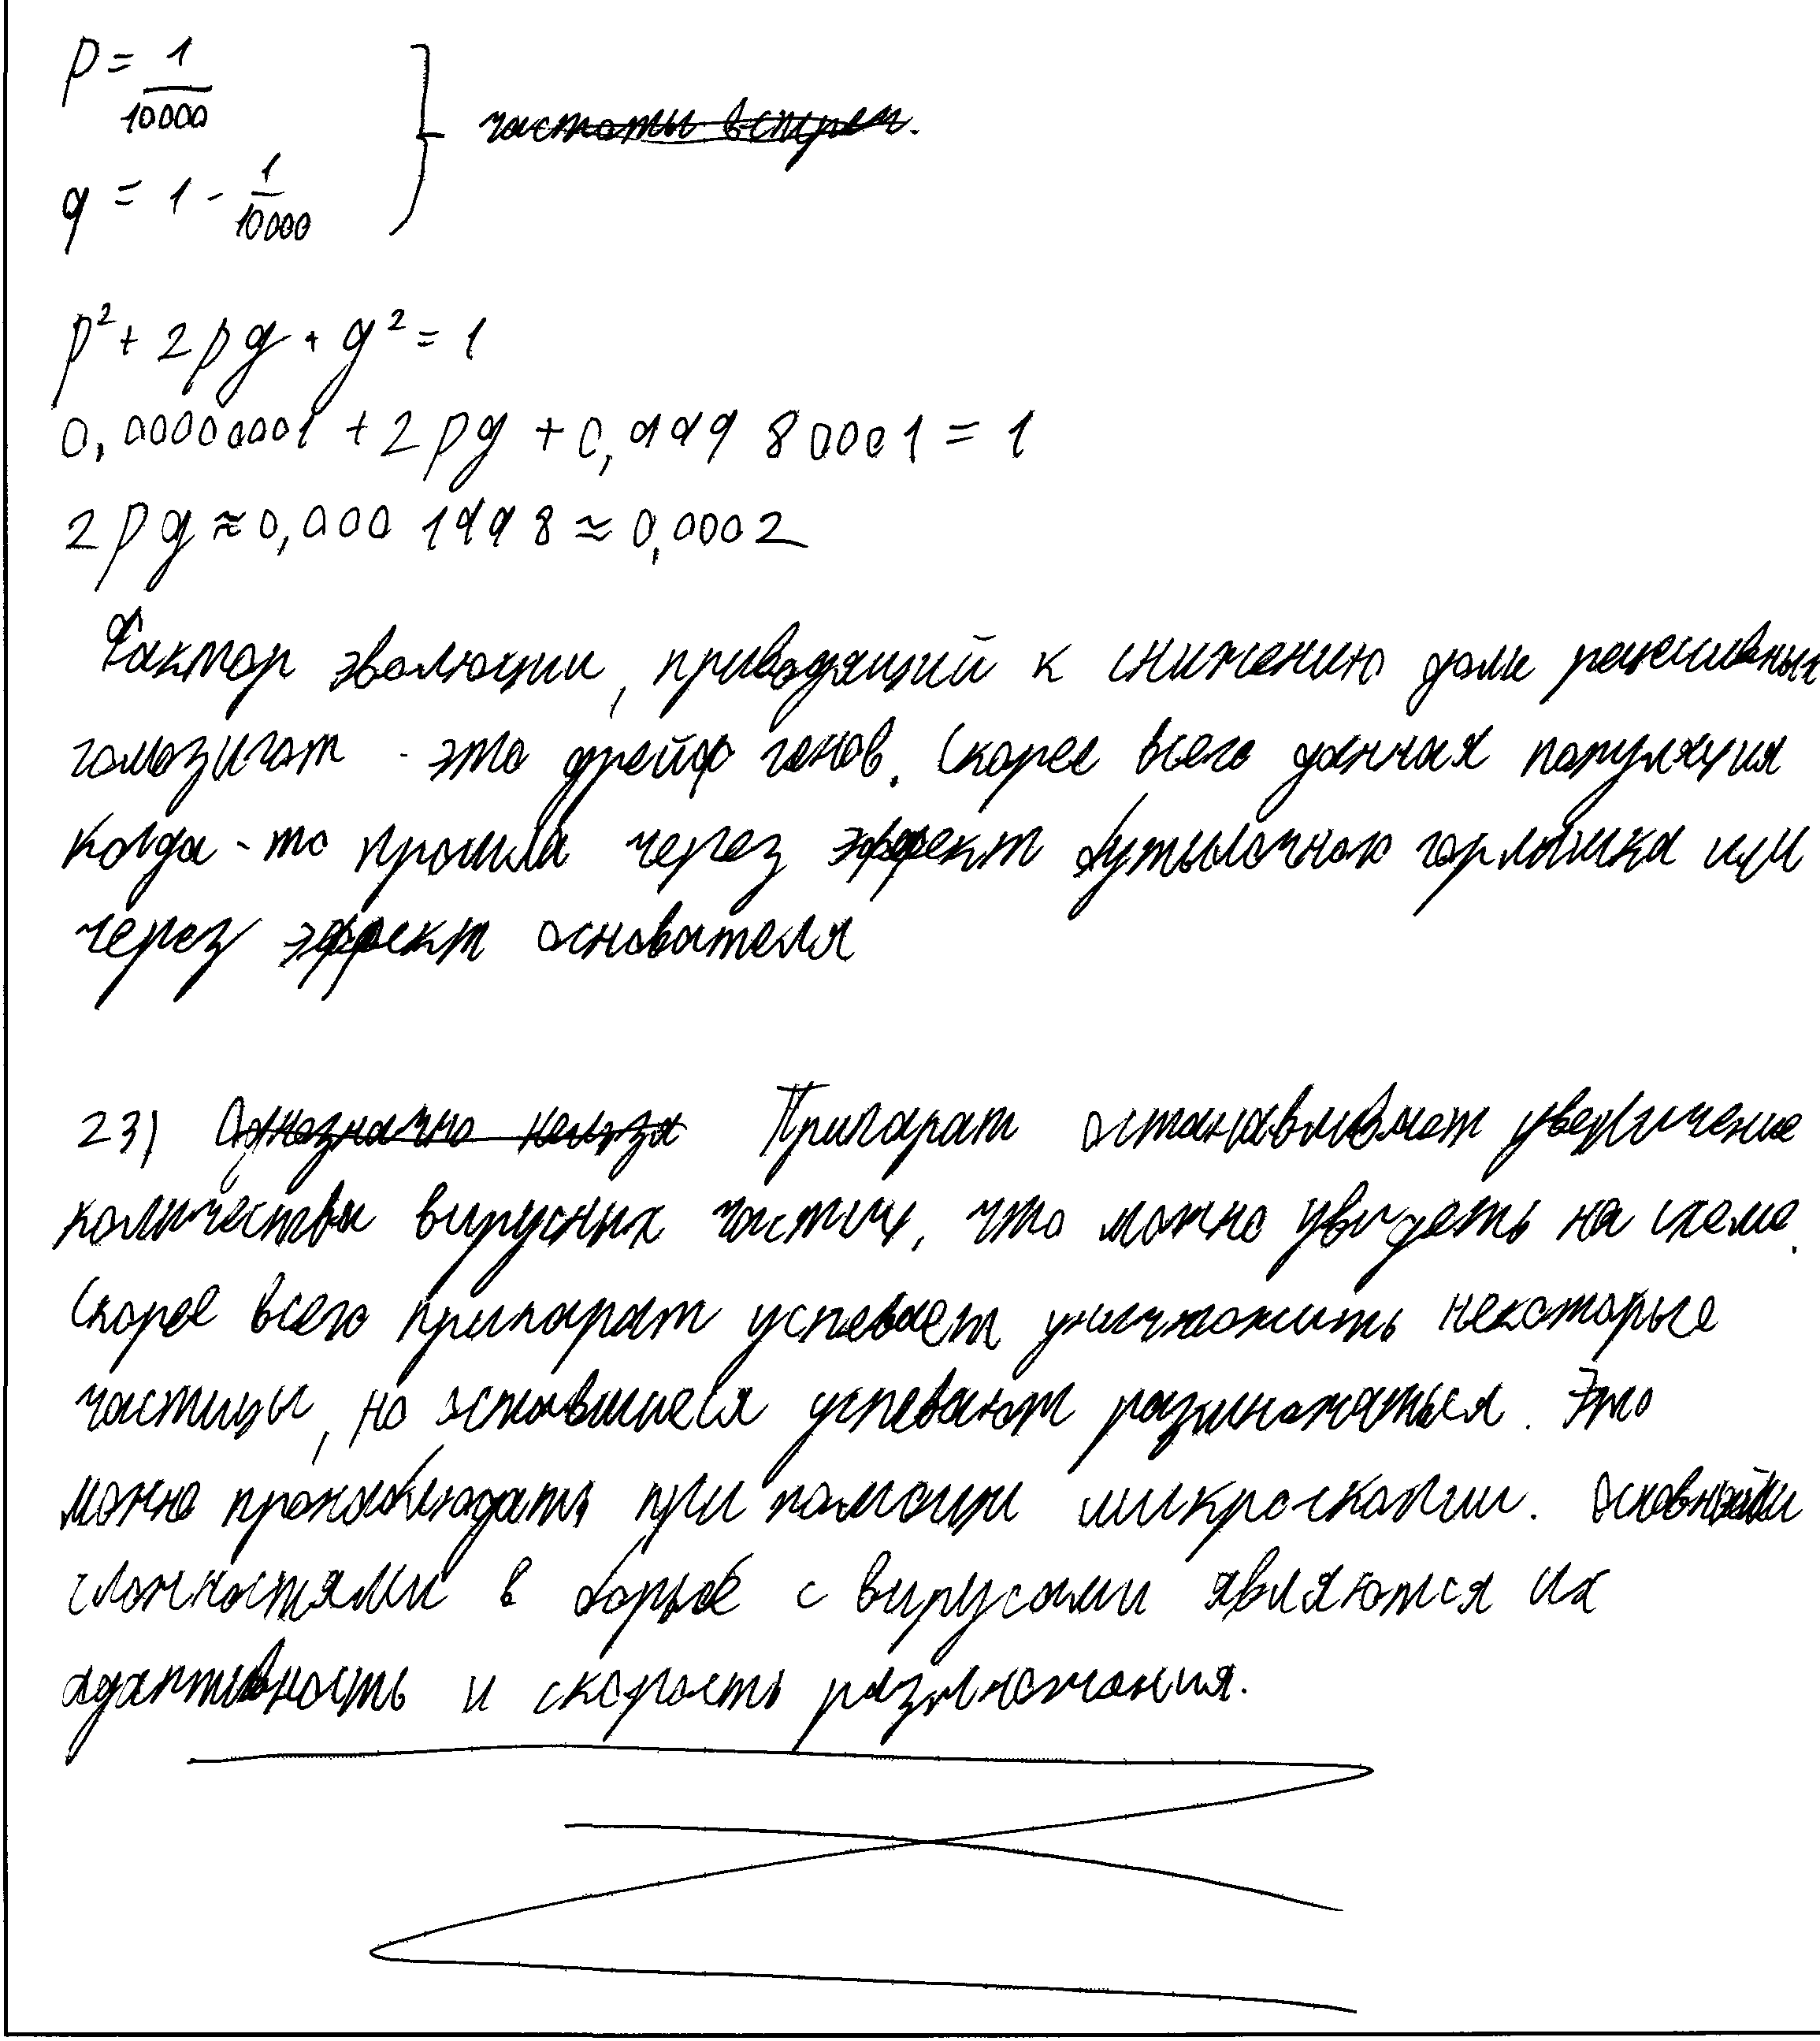 p = 1/10000
частоты встреч.
q = 1 - 1/10000
p² + 2pq + q² = 1
0,00000001 + 2pq + 0,99980001 = 1
2pq ≈ 0,0001998 ≈ 0,0002
Фактор эволюции, приводящий к снижению доли рецессивных
гомозигот - это дрейф генов. Скорее всего данная популяция
когда-то прошла через эффект бутылочного горлышка или
через эффект основателя
23) Однозначно нельзя Припарат останавливает увеличение
количества вирусных частиц, что можно увидеть на схеме.
Скорее всего припарат успевает уничтожить некоторые
частицы, но оставшиеся успевают размножаться. Это
можно пронаблюдать при помощи микроскопии. Основными
сложностями в борьбе с вирусами являются их
адаптивность и скорость размножения.